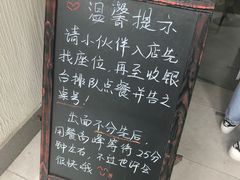 温馨提示
请小伙伴入店先
找座位,再至收银
台排队点餐并告之
桌号!
出面不分先后,
用餐高峰等待25分
钟左右,不过也许会
很快哦~